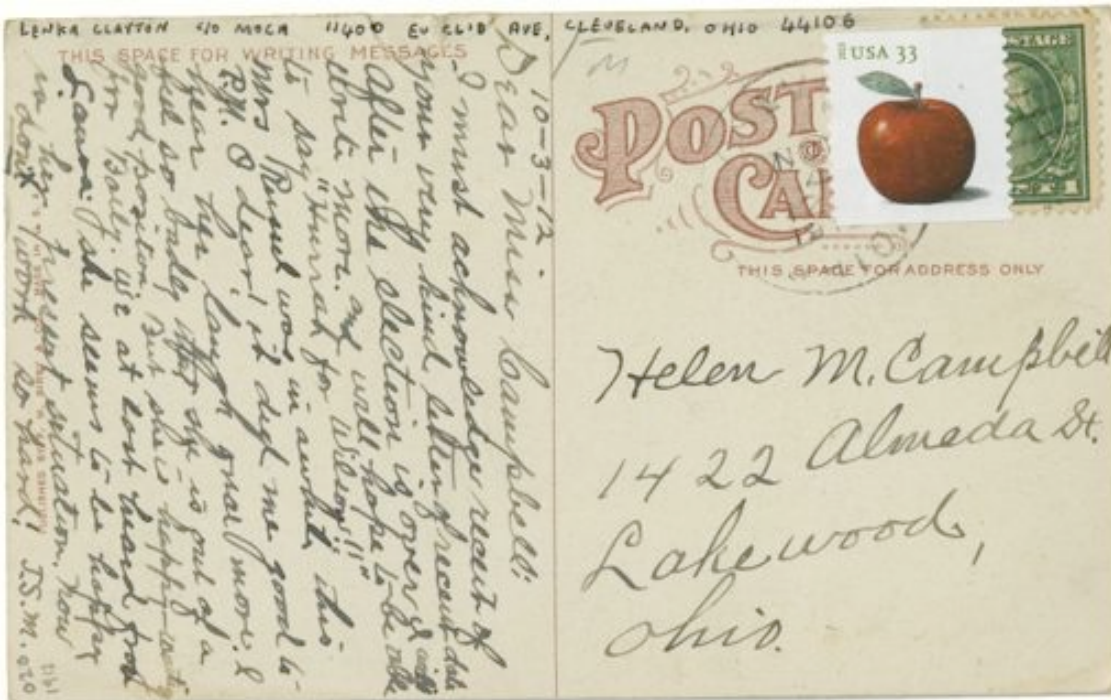 LENKA CLAYTON C/O MOCA 11400 EUCLID AVE, CLEVELAND, OHIO 44106
THIS SPACE FOR WRITING MESSAGES
10-3-12
Dear Miss Campbell:
I must acknowledge receipt of
your very kind letter of recent date
After the election is over I will
write more. and will hope to be able
to say "Hurrah for Wilson!!"
Mrs Round was in awhile this
P.M. O dear! it did me good to
hear her laugh once more. I
feel so badly after she is out of a
good position. But she is happy
for Baily. We at last heard from
Laura. She seems to be happy
in her present situation. Now
don't work so hard! J.S.M.
POST
CA
USA 33
POSTAGE
CENT 1
THIS SPACE FOR ADDRESS ONLY
Helen M. Campbell
1422 Almeda St.
Lakewood,
Ohio.